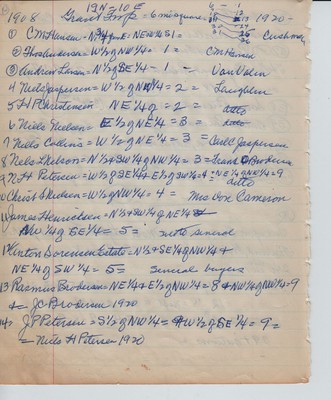 19N-10E
1908 Grant Twp = 6 mi square 1920 -
① C M Hansen = = NE W4 S 1 = Cushman
② Thos Andersen = W½ of NW¼ = 1 = C M Hansen
③ Andrew Larsen = N½ of SE¼ - 1 -
4 Niels Jespersen = W½ of NW¼ = 2 = Laughlin
5 H P Christensen NE¼ of = 2 = ditto
6 Niels Nielsen = E½ of NE¼ = 3 = ditto
7 Nells Collins = W½ of NE¼ = 3 = Carl C Jespersen
8 Nels L Nelson = N½ + SW¼ of NW¼ = 3 = Frank Brodersen
9 N. H Petersen = W½ of SE¼ + E½ of SW¼ = 4 + NE¼ of NW¼ = 9
ditto
10 Christ C Knudsen = W½ of NW¼ = 4 = Mrs Don Cameron
11 James Henricksen = N½ + SW¼ of NE¼ +
NW¼ of SE¼ = 5 = ditto several
12 Anton Sorensen Estate = N½ + SE¼ of NW¼ +
NE¼ of SW¼ = 5 = several buyers
13 Rasmus Brodersen = NE¼ + E½ of NW¼ = 8 + NW¼ of NW¼ = 9
= J C Brodersen 1920
14 J P Petersen = S½ of NW¼ = + W½ of SE¼ = 9 =
= Niels H Petersen 1920